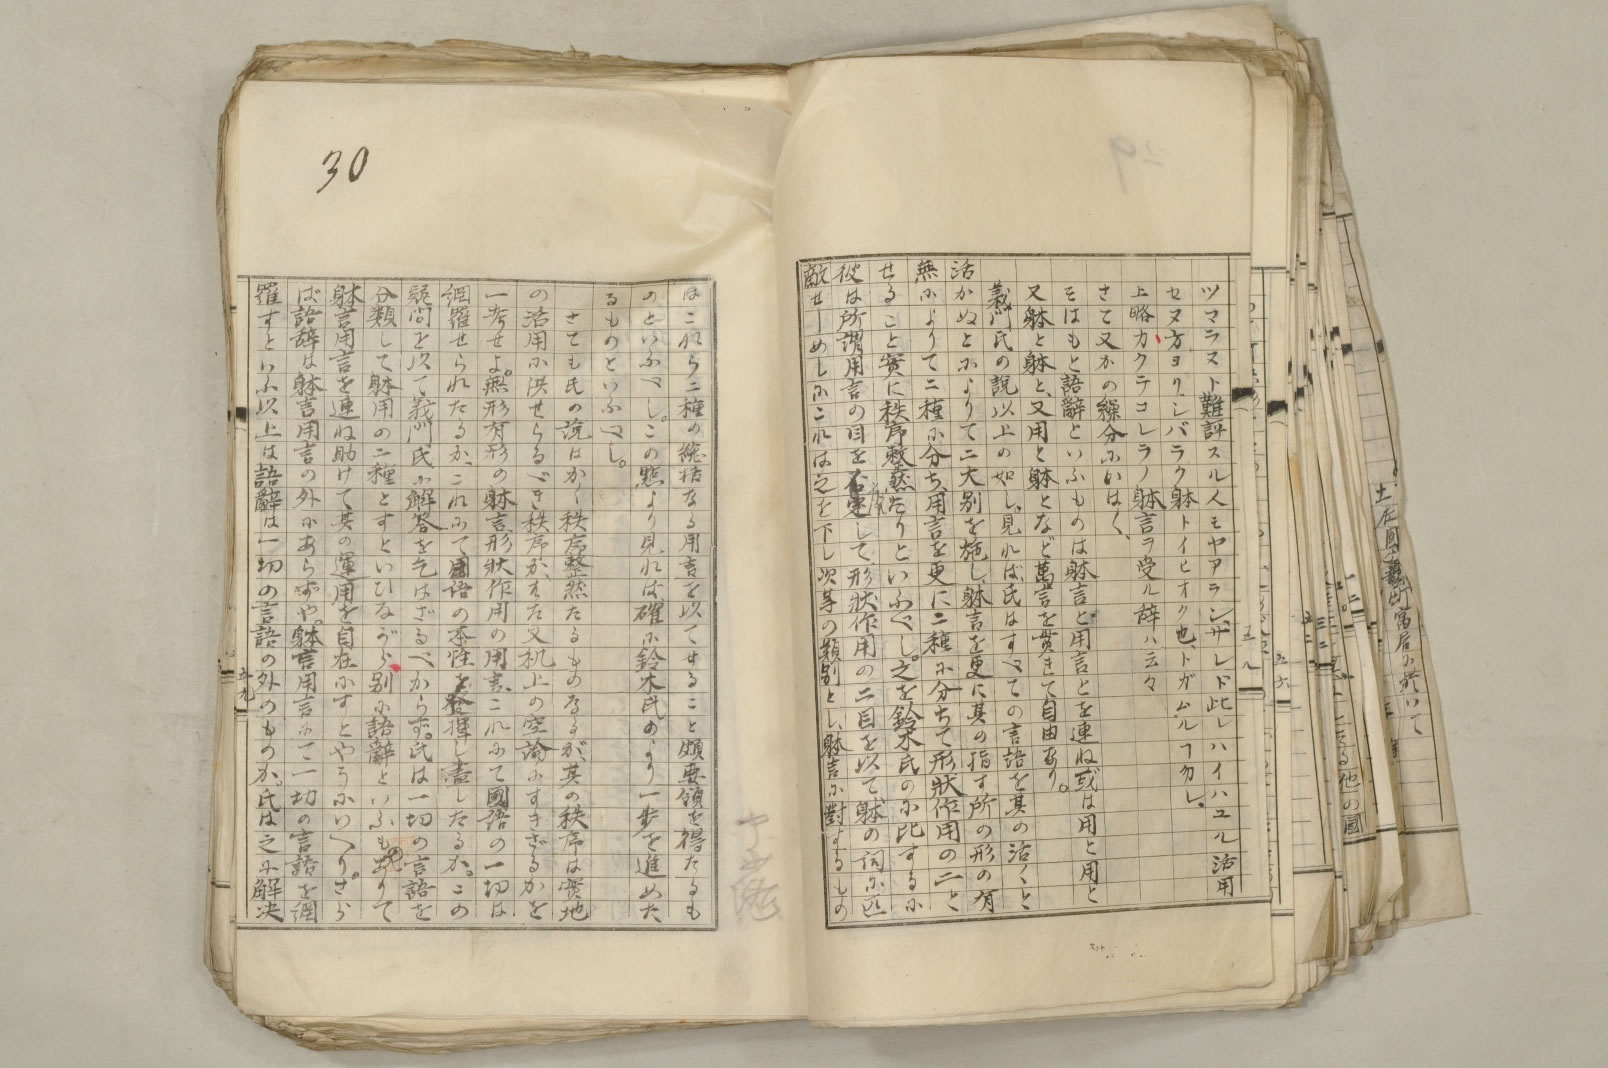 ツマラヌト難評スル人モヤアラン、サレド此レハイハユル活用
セヌ方ヨリシバラク躰トイヒオク也、トガムルヿ勿レ、
上略カクテコレラノ躰言ヲ受ル辞ハ云々
さて又かの繰分にいはく、
そはもと語辭といふものは躰言と用言とを連ね或は用と用と
又躰と躰と、又用と躰となど萬言を貫きて自由あり。
義門氏の説以上の如し、見れば氏はすべての言語を其の活くと
活かぬとによりて二大別を施し、躰言を更に其の指す所の形の有
無によりて二種に分ち用言を更に二種に分ちて形狀作用の二と
せること實に秩序整然たりといふべし。之を鈴木氏の
彼は所謂用言の目を否定して、形狀作用の二目を以て躰の詞に匹
敵せしめしにこれは之を下し次等の類別とし、躰言に對するもの
五八
30
はこれら二種の總括なる用言を以てせること頗要領を得たるも
のといふべし。この點より見れば確に鈴木氏のより一歩を進めた
るものといふべし。
さても氏の説はかく秩序整然たるものなるが、其の秩序は實地
の活用に洪せらるべき秩序か、はた又机上の空論にすぎざるかを
一考せよ。無形有形の躰言、形狀作用の用言、これにて國語の一切は
網羅せられたるか、これにて國語の本性を發揮し盡したるか。この
疑問を以て義門氏に解答を乞はざるべからず。氏は一切の言語を
分類して躰用の二種とすといひながら、別に語辭といふものありて
躰言用言を連ね助けて其の運用を自在にすとやうにいへり。さら
ば語辭は躰言用言の外にあらずや。躰言用言にて一切の言語を網
羅すといふ以上は語辭は一切の言語の外のものか。氏は之に解決
五九